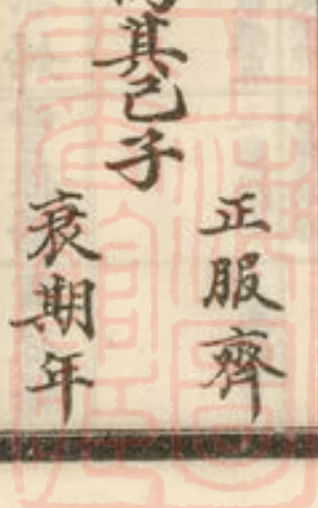 其己子
正服齊
衰期年